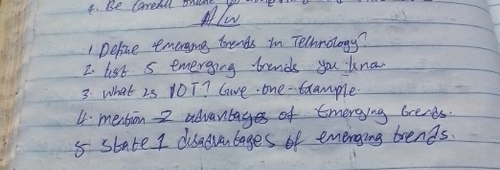 4. Be careful online
H/W
1. Define emerging trends in Technology?
2. List 5 emerging trends you know
3. What is IOT? Give one example.
4. mention 2 advantages of Emerging trends.
5 State 1 disadvantages of emerging trends.